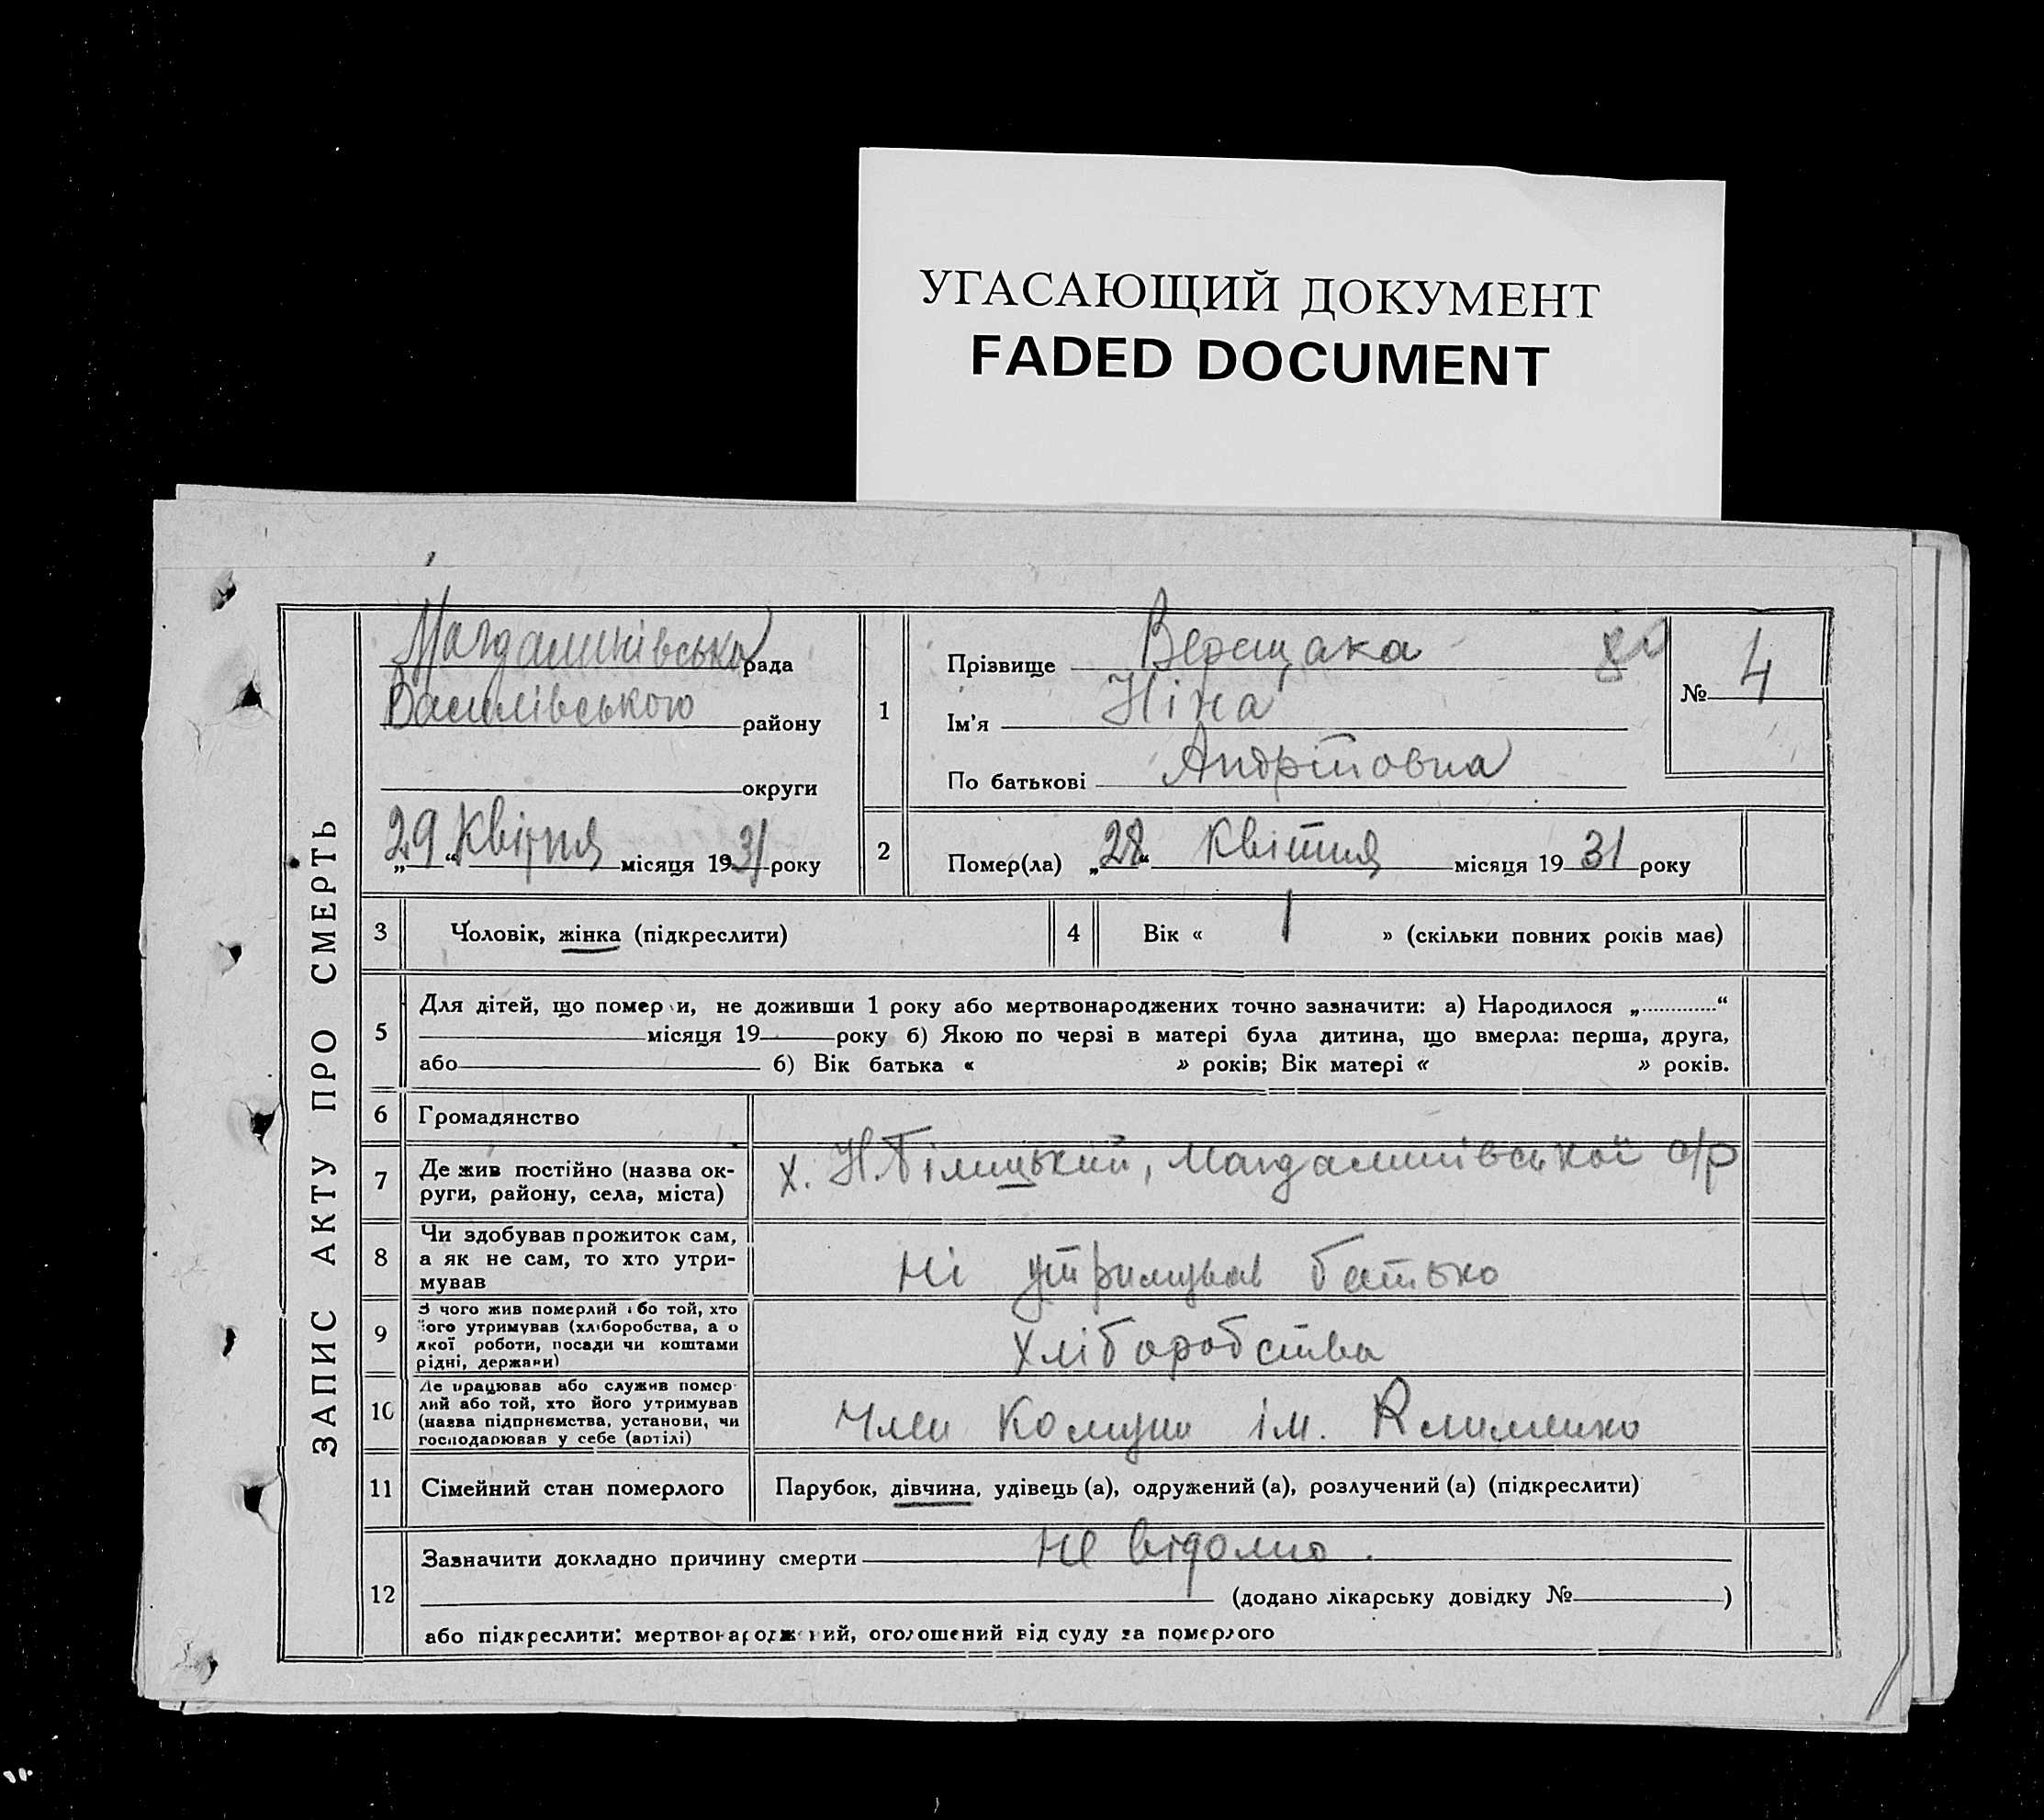 УГАСАЮЩИЙ ДОКУМЕНТ
FADED DOCUMENT
ЗАПИС АКТУ ПРО СМЕРТЬ
Магдалинівська рада
Василівського району
округи
„29“ Квітня місяця 1931 року
1
Прізвище Верещака
Ім'я Ніна
По батькові Андрїтовна
№ 4
2
Помер(ла) „28“ Квітня місяця 19 31 року
3 Чоловік, жінка (підкреслити)
4 Вік « 1 » (скільки повних років має)
5
Для дітей, що помер и, не доживши 1 року або мертвонароджених точно зазначити: а) Народилося „ “
місяця 19 року б) Якою по черзі в матері була дитина, що вмерла: перша, друга,
або б) Вік батька « » років; Вік матері « » років.
6 Громадянство
7
Де жив постійно (назва ок-
руги, району, села, міста)
х. Магдалинівської с/р
8
Чи здобував прожиток сам,
а як не сам, то хто утри-
мував
ні утримував батько
9
З чого жив померлий або той, хто
його утримував (хліборобства, а о
якої роботи, посади чи коштами
рідні, держави)
хліборобства
10
Де працював або служив помер-
лий або той, хто його утримував
(назва підприємства, установи, чи
господарював у себе (артілі)
Член Комуни ім. Клименко
11 Сімейний стан померлого
Парубок, дівчина, удівець (а), одружений (а), розлучений (а) (підкреслити)
12
Зазначити докладно причину смерти не відомо.
(додано лікарську довідку № )
або підкреслити: мертвонароджений, оголошений від суду за померлого